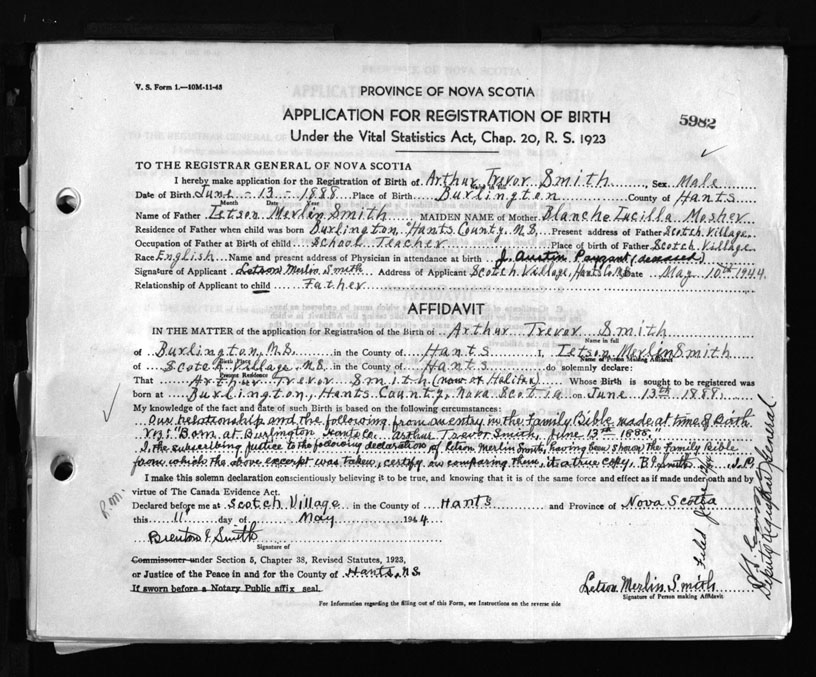 V. S. Form 1.—10M-11-43
PROVINCE OF NOVA SCOTIA
APPLICATION FOR REGISTRATION OF BIRTH
5982
Under the Vital Statistics Act, Chap. 20, R. S. 1923
TO THE REGISTRAR GENERAL OF NOVA SCOTIA
I hereby make application for the Registration of Birth of Arthur Trevor Smith, Sex Male
Date of Birth June - 13 - 1888 Place of Birth Burlington County of Hants
Month Date Year
Name of Father Letson Merlin Smith MAIDEN NAME of Mother Blanche Lucilla Mosher
Residence of Father when child was born Burlington, Hants County, N.S. Present address of Father Scotch Village
Occupation of Father at Birth of child School Teacher Place of birth of Father Scotch Village
Race English Name and present address of Physician in attendance at birth J. Austin Paysant (deceased)
Signature of Applicant Letson Merlin Smith Address of Applicant Scotch Village, Hants Co. N.S. Date May 10th 1944
Relationship of Applicant to child Father
AFFIDAVIT
IN THE MATTER of the application for Registration of the Birth of Arthur Trevor Smith
Name in full
of Burlington, N.S. in the County of Hants I, Letson Merlin Smith
Birth Place Name of Person Making Affidavit
of Scotch Village, N.S. in the County of Hants do solemnly declare:
Present Residence
That Arthur Trevor Smith (now of Halifax) Whose Birth is sought to be registered was
born at Burlington, Hants County, Nova Scotia on June 13th 1888
My knowledge of the fact and date of such Birth is based on the following circumstances:
Our relationship and the following from an entry in the Family Bible made at time of Birth
viz: "Born at Burlington Hants Co. Arthur Trevor Smith, June 13th 1888."
I, the subscribing justice to the following declaration of Letson Merlin Smith, having been shown the Family Bible
from which the above excerpt was taken, certify on comparing them, it a true copy. B. I. Smith J.P.
I make this solemn declaration conscientiously believing it to be true, and knowing that it is of the same force and effect as if made under oath and by
virtue of The Canada Evidence Act.
Declared before me at Scotch Village in the County of Hants and Province of Nova Scotia
this 11 day of May 1944
Brenton I. Smith
Signature of
Commissoner under Section 5, Chapter 38, Revised Statutes, 1923,
or Justice of the Peace in and for the County of Hants, N.S.
If sworn before a Notary Public affix seal.
Letson Merlin Smith
Signature of Person making Affidavit
For Information regarding the filling out of this Form, see Instructions on the reverse side
Filed June
Deputy Registrar General